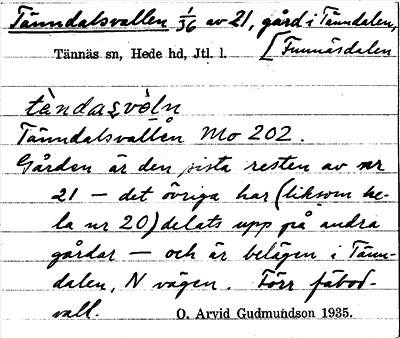 Tänndalsvallen 1/36 av 21, gård i Tänndalen,
Tännäs sn, Hede hd, Jtl. l. [Funnäsdalen
Tänndalsvallen Mo 202.
Gården är den sista resten av nr
21 – det övriga har (liksom he-
la nr 20) delats upp på andra
gårdar – och är belägen i Tänn-
dalen, N vägen. Förr fäbod-
vall. O. Arvid Gudmundson 1935.